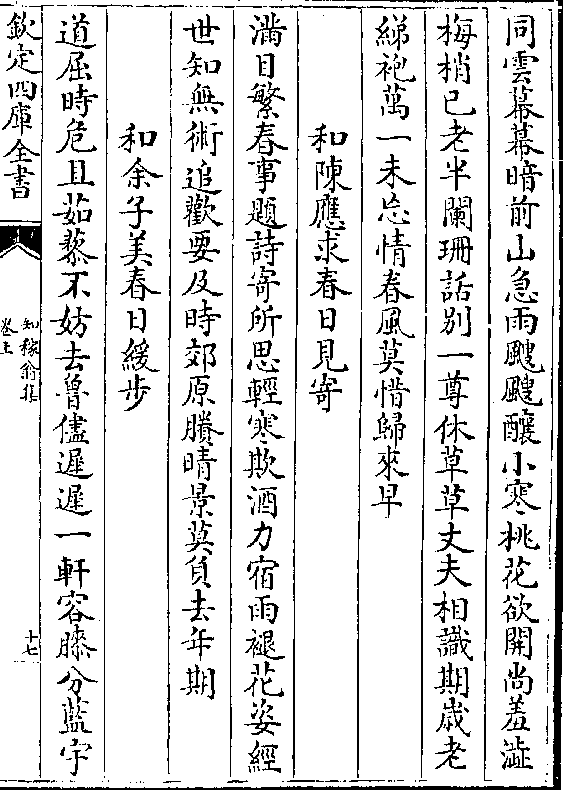 同雲幕幕暗前山急雨颼颼釀小寒桃花欲開尚羞澁
梅梢已老半闌珊話别一尊休草草丈夫相識期歳老
綈袍萬一未忘情春風莫惜歸來早
和陳應求春日見寄
滿目繁春事題詩寄所思輕寒欺酒力宿雨褪花姿經
世知無術追歡要及時郊原賸晴景莫負去年期
和余子美春日緩步
道屈時危且茹藜不妨去魯儘遲遲一軒容膝分藍宇
欽定四庫全書
知稼翁集
卷上
十七